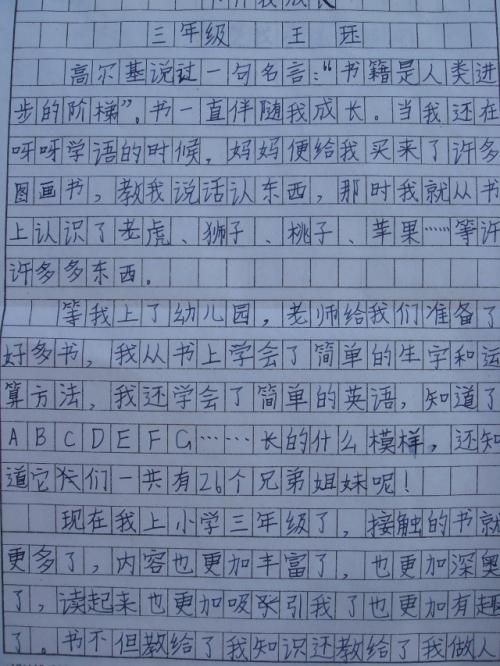 伴我成长
三年级 王珏
高尔基说过一句名言:“书籍是人类进
步的阶梯”。书一直伴随我成长。当我还在
呀呀学语的时候,妈妈便给我买来了许多
图画书,教我说话认东西,那时我就从书
上认识了老虎、狮子、桃子、苹果……等许
许多多东西。
等我上了幼儿园,老师给我们准备了
好多书,我从书上学会了简单的生字和运
算方法,我还学会了简单的英语,知道了
ABCDEFG……长的什么模样,还知
道它们一共有26个兄弟姐妹呢!
现在我上小学三年级了,接触的书就
更多了,内容也更加丰富了,也更加深奥
了,读起来也更加吸引我了也更加有趣
了。书不但教给了我知识还教给了我做人